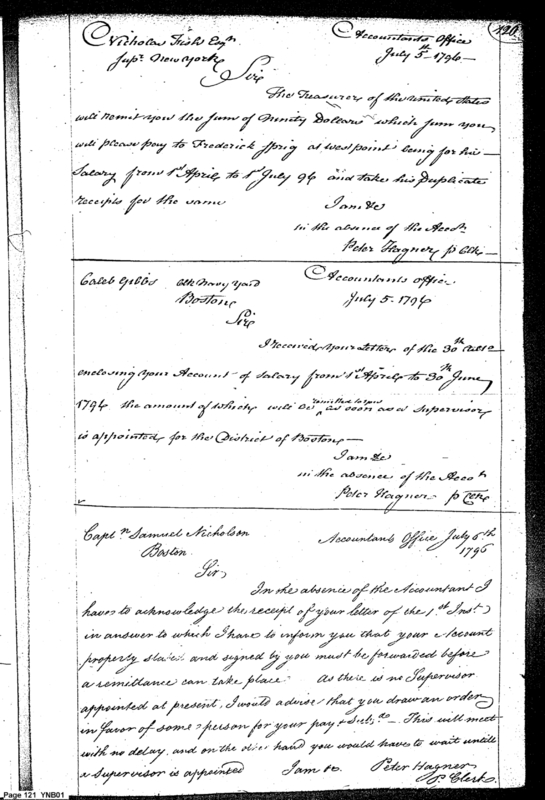 120
Nicholas Fish Esqr
Supt. New York
Accountants Office
July 5th 1796
Sir
The Treasurer of the United States
will remit you the Sum of Ninety Dollars which sum you
will please pay to Frederick Sprig at westpoint being for his
Salary from 1st April to 1st July 96 and take his Duplicate
receipts for the same
I am &c
in the absence of the Acct
Peter Hagner p Clk
Caleb Gibbs Clk Navy Yard
Boston
Accountants office
July 5 1796
Sir
I received your Letter of the 30th
enclosing your Account of Salary from 1st April to 30th June
1796 the amount of which will be remitted to you as soon as a Supervisor
is appointed for the District of Boston
I am &c
in the absence of the Acct
Peter Hagner p Clk
Captn Samuel Nicholson
Boston
Accountants Office July 6th
1796
Sir
In the absence of the Accountant I
have to acknowledge the receipt of your letter of the 1st Inst
in answer to which I have to inform you that your Account
property stated and signed by you must be forwarded before
a remittance can take place. As there is no Supervisor
appointed at present, I would advise that you draw an order
in favor of some person for your pay & Subs. This will meet
with no delay, and on the other hand you would have to wait untill
a Supervisor is appointed I am &c. Peter Hagner
P. Clerk
Page 121 YNB01